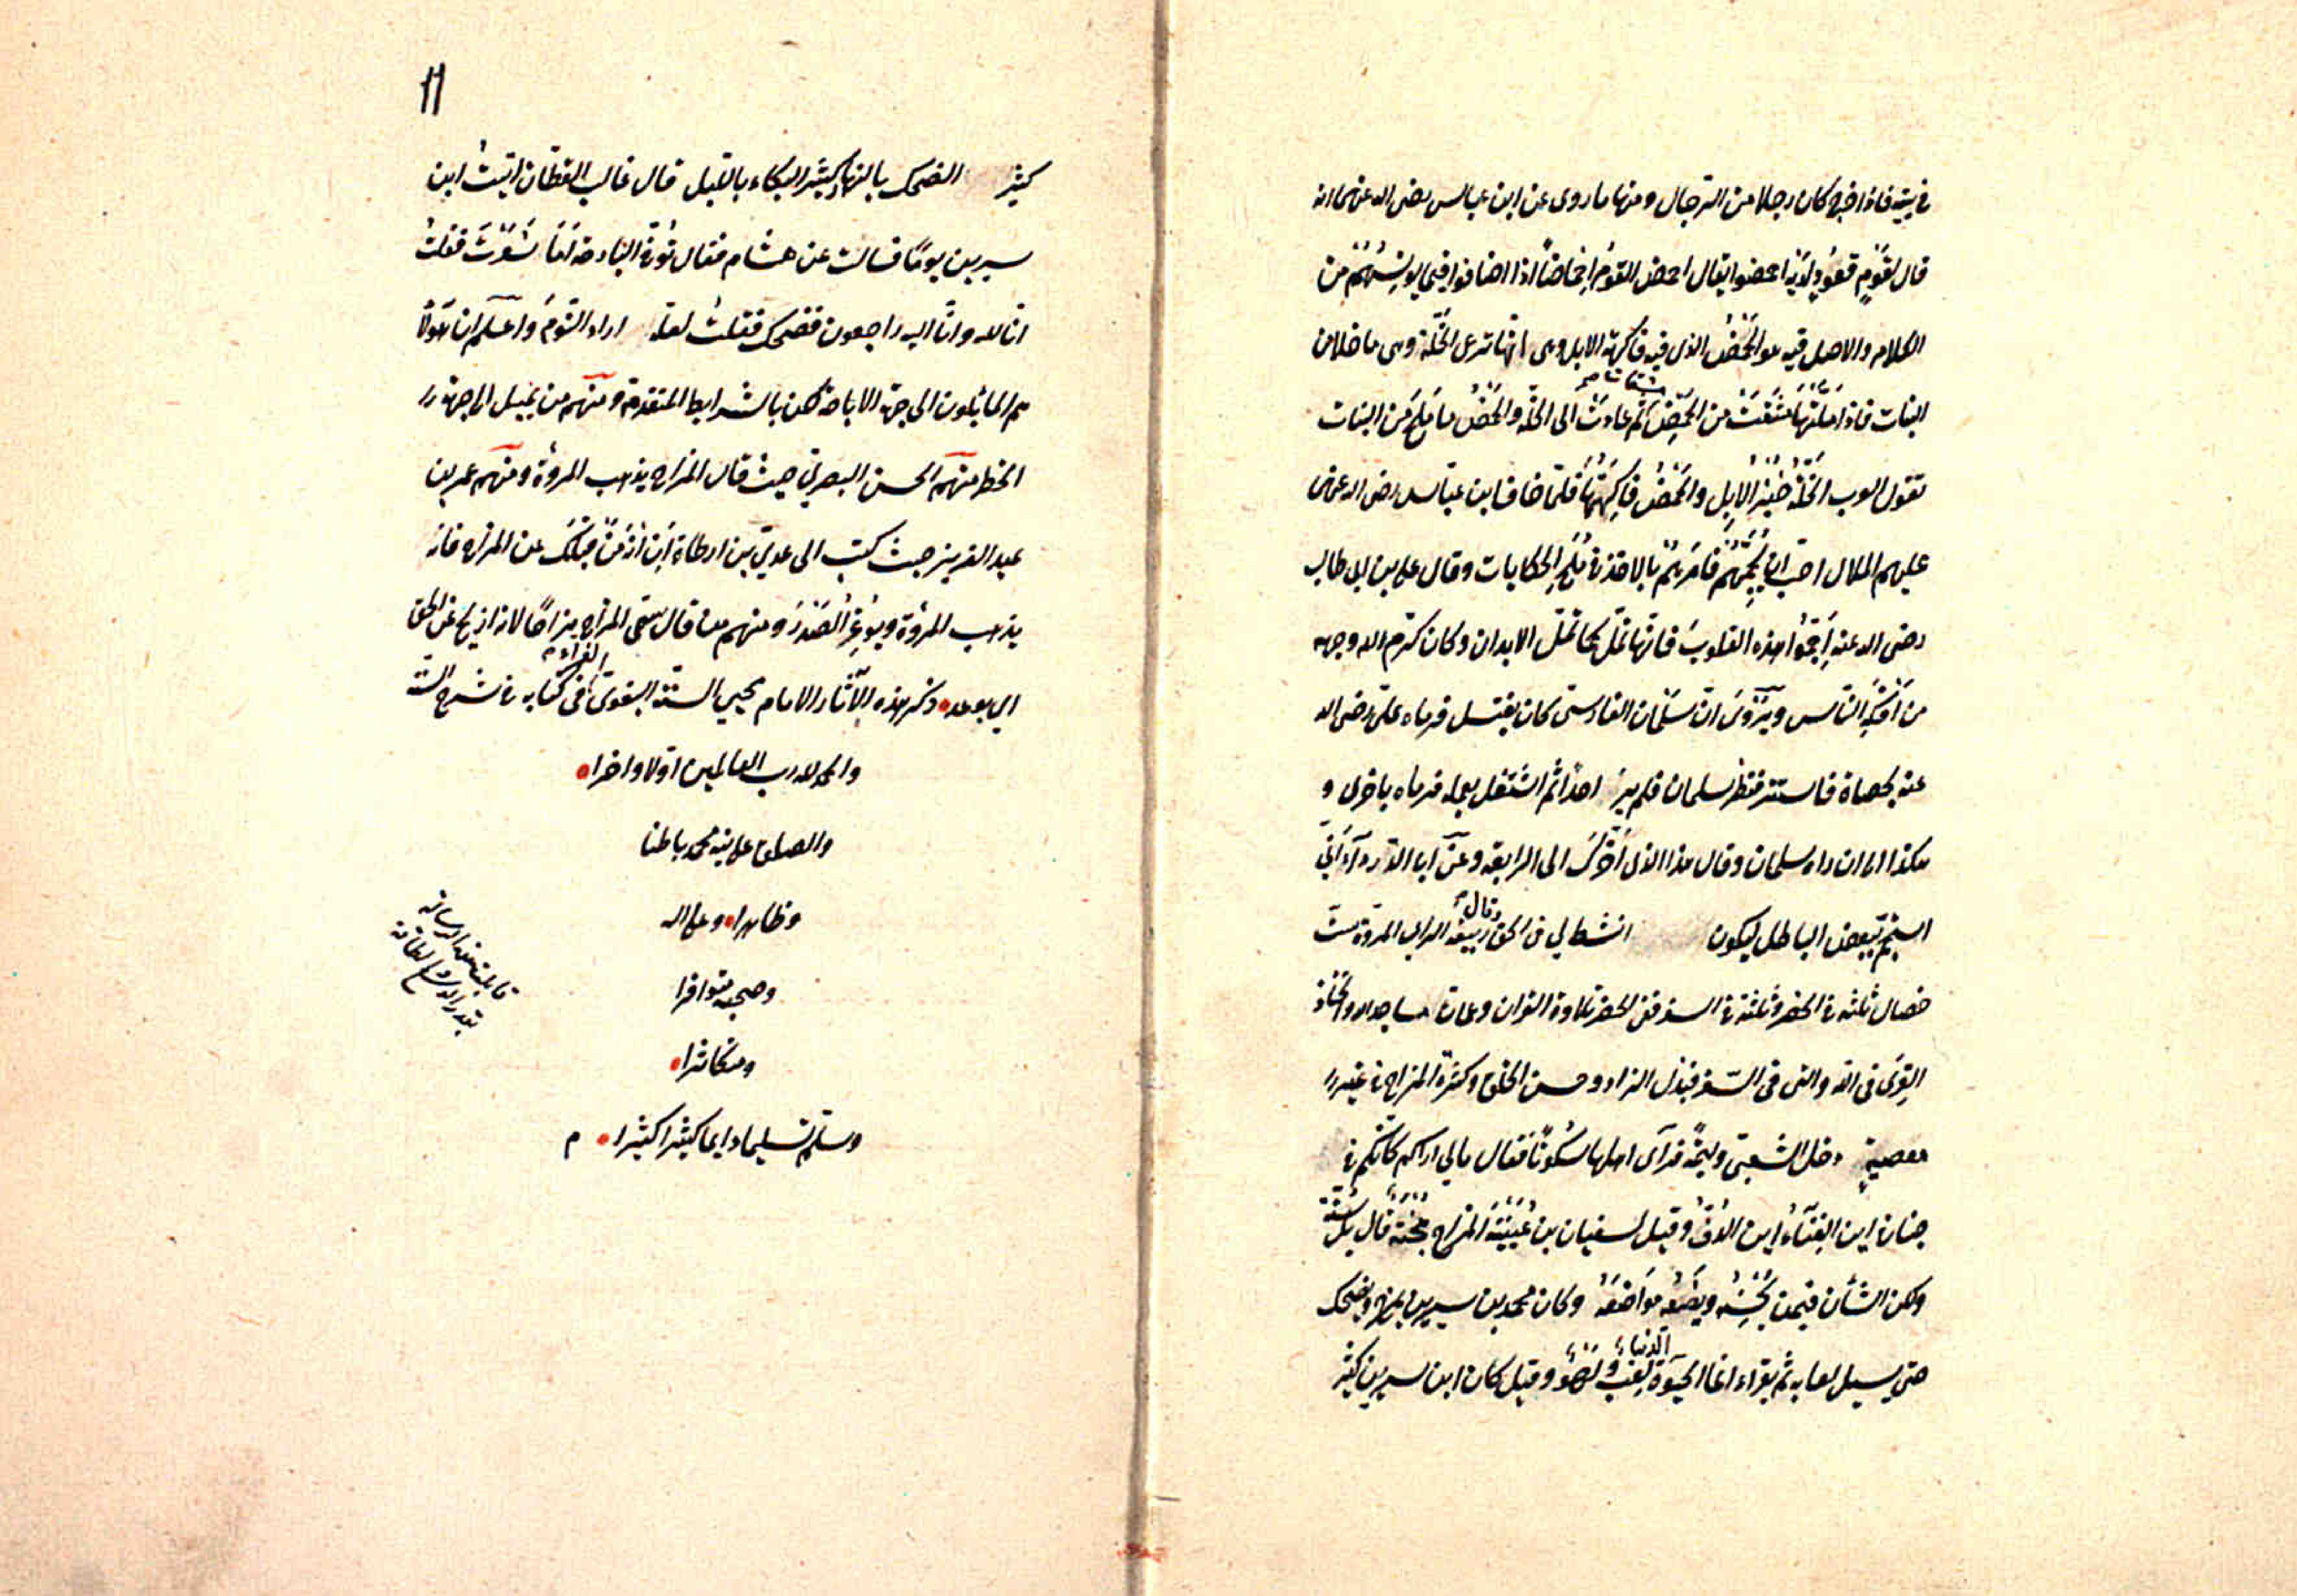 في بيته فاذا خرج كان رجلا من الرجال ومنها ما روى عن ابن عباس رضى الله عنهما انه
قال لقوم قعود لديه احمضوا يقال احمض القوم احماضا اذا افاضوا فيما يونسهم من
الكلام والاصل فيه هو الحمض الذى فيه فاكهة الابل وهى انها ترعى الخلة وهى ما خلا من
النبات فاذا ملتها مشقت من الحمض ثم عادت الى الخلة والحمض ما ملح من النبات
تقول العرب الخلة خبز الابل والحمض فاكهتها فلما خاف ابن عباس رضى الله عنهما
عليهم الملال احب ان يجمهم فامرهم بالاخذ في ملح الحكايات وقال على بن ابى طالب
رضى الله عنه اجموا هذه القلوب فانها تمل كما تمل الابدان وكان كرم الله وجهه
من افكه الناس ويروى ان سلمان الفارسى كان يغتسل فرماه على رضى الله
عنه بحصاة فاستتر فنظر سلمان فلم ير احدا ثم اشتغل بعمله فرماه باخرى و
هكذا الى ان راه سلمان وقال هذا الذى اخرك الى الرابعة وعن ابى الدرداء انى
استجم ببعض الباطل ليكون انشط لي في الحق وقال ربيعة الراى المروة ست
خصال ثلثة في الحضر وثلثة في السفر ففى الحضر تلاوة القران وعمارة مساجد الله واتخاذ
القرى في الله والتى في السفر فبذل الزاد وحسن الخلق وكثرة المزاح في غير
معصية دخل الشعبى وليمة فرآى اهلها سكوتا فقال مالي اراكم كانكم في
جنازة اين الغناء اين الدف وقيل لسفيان بن عيينة المزاح هجنة قال بل سنة
ولكن الشان فيمن يحسنه ويضعه مواضعه وكان محمد بن سيرين يمزح ويضحك
حتى يسيل لعابه ثم يقراء انما الحيوة الدنيا لعب ولهو وقيل كان ابن سيرين كثير
11
كثير الضحك بالنهار كثير البكاء بالليل قال غالب القطان اتيت ابن
سيرين يوما فسالت عن هشام فقال توفى البارحة اما شعرت فقلت
انا لله وانا اليه راجعون فضحك فقلت لعله اراد النوم واعلم ان هولاء
هم المائلون الى جهة الاباحة لكن بالشرايط المتقدمة ومنهم من يميل الى جهة
الخطر منهم الحسن البصرى حيث قال المزاح يذهب المروة ومنهم عمر بن
عبد العزيز حيث كتب الى عدي بن ارطاة ان انه من قبلك عن المزاح فانه
يذهب المروة ويوغر الصدر ومنهم من قال سمى المزاح مزاحا لانه ازيح عن الحق
الى بعده ذكر هذه الآثار الامام محيي السنة البغوى الفراء في كتابه في شرح السنة
والحمد لله رب العالمين اولا واخرا
والصلوة على نبيه محمد باطنا
وظاهرا وعلى اله
وصحبه متوافرا
ومتكاثرا
وسلم تسليما دايما كثيرا كثيرا م
قابلت هذه الرسالة
بقدر الوسع والطاقة